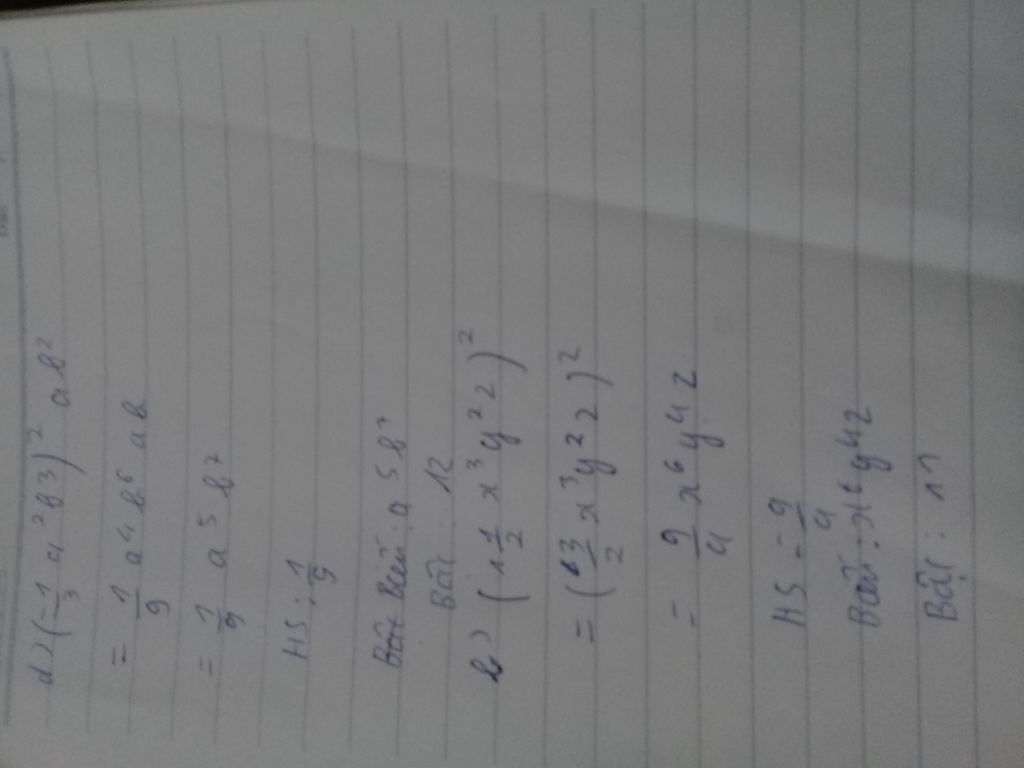 d) (-1/3 a²b³)² ab²
= 1/9 a⁴b⁶ ab
= 1/9 a⁵b⁷
HS: 1/9
Biến: a⁵b⁷
Bậc: 12
b) (1 1/2 x³y²z)²
= (3/2 x³y²z)²
= 9/4 x⁶y⁴z
HS = 9/4
Biến: x⁶y⁴z
Bậc: 11